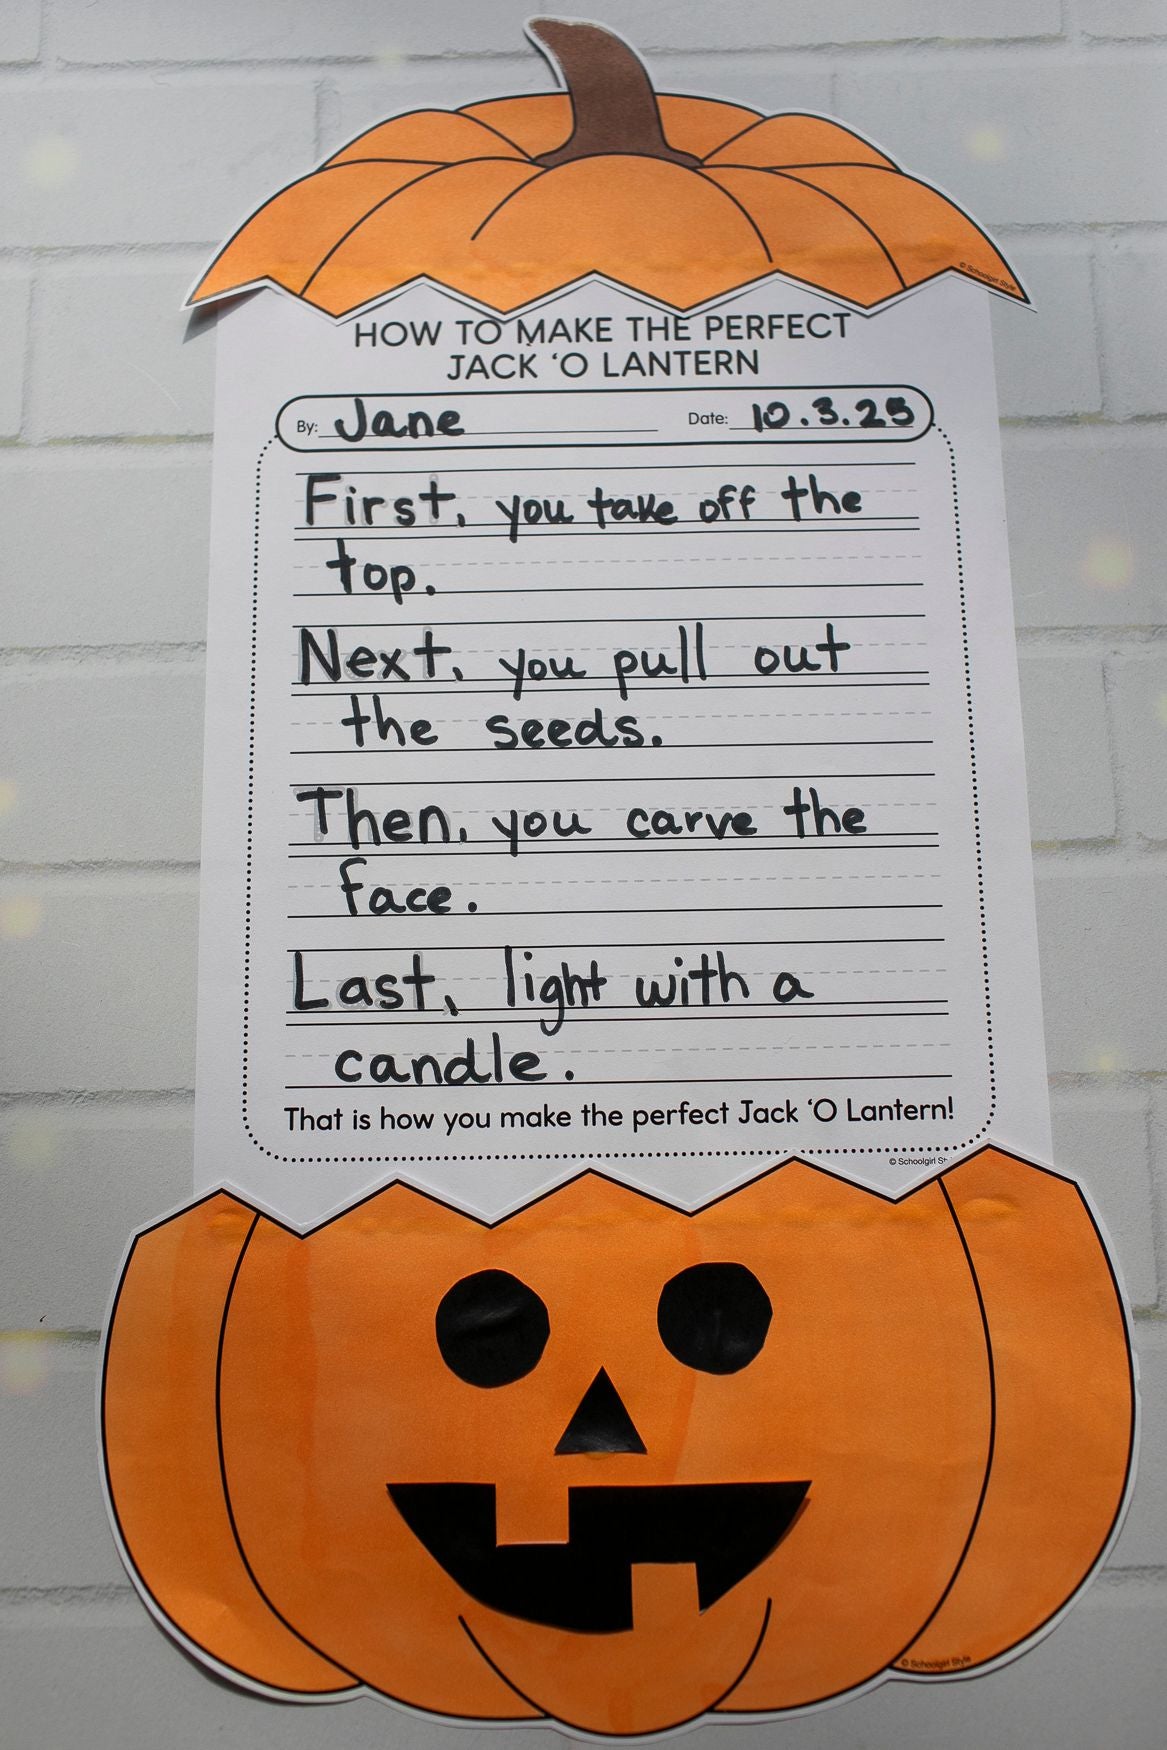 © Schoolgirl Style
HOW TO MAKE THE PERFECT
JACK ‘O LANTERN
By: Jane Date: 10.3.25
First, you take off the
top.
Next, you pull out
the seeds.
Then, you carve the
face.
Last, light with a
candle.
That is how you make the perfect Jack ‘O Lantern!
© Schoolgirl St
© Schoolgirl Style